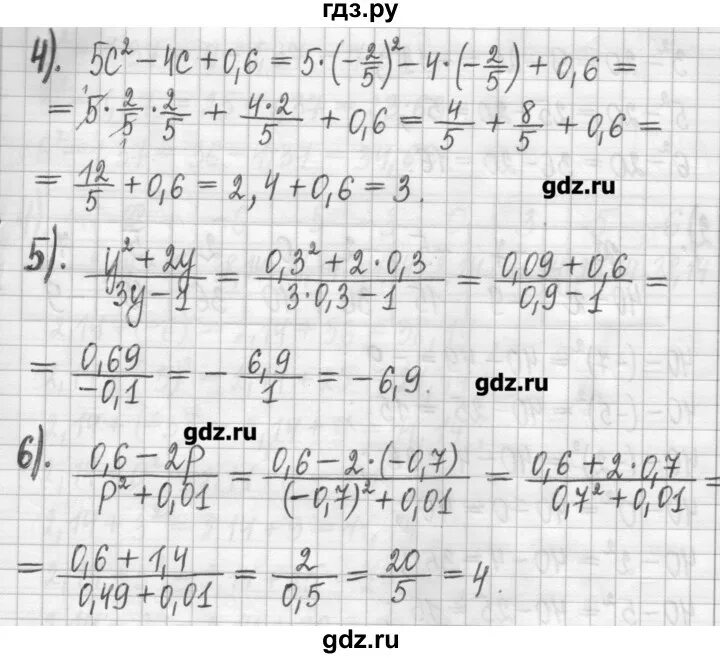 гдз.ру
4). 5c² − 4c + 0,6 = 5·(−2/5)² − 4·(−2/5) + 0,6 =
= 5·2/5·2/5 + 4·2/5 + 0,6 = 4/5 + 8/5 + 0,6 =
= 12/5 + 0,6 = 2,4 + 0,6 = 3.
gdz.ru
5). y² + 2y / 3y − 1 = 0,3² + 2·0,3 / 3·0,3 − 1 = 0,09 + 0,6 / 0,9 − 1 =
= 0,69 / −0,1 = − 6,9 / 1 = −6,9.
gdz.ru
gdz.ru
6). 0,6 − 2p / p² + 0,01 = 0,6 − 2·(−0,7) / (−0,7)² + 0,01 = 0,6 + 2·0,7 / 0,7² + 0,01 =
= 0,6 + 1,4 / 0,49 + 0,01 = 2 / 0,5 = 20 / 5 = 4.
gdz.ru